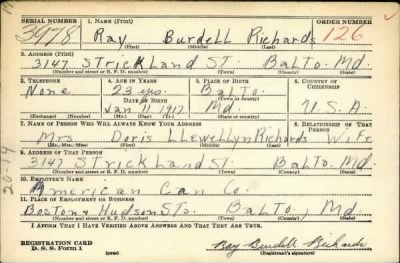 SERIAL NUMBER 1. NAME (Print) ORDER NUMBER
3978 Ray Burdell Richards 126
(First) (Middle) (Last)
2. ADDRESS (Print)
3147 Strickland St. Balto. Md.
(Number and street or R. F. D. number) (Town) (County) (State)
3. TELEPHONE 4. AGE IN YEARS 5. PLACE OF BIRTH 6. COUNTRY OF CITIZENSHIP
None 23 yrs. Balto.
DATE OF BIRTH (Town or county)
Jan 1 1917 Md. U.S.A.
(Exchange) (Number) (Mo.) (Day) (Yr.) (State or country)
7. NAME OF PERSON WHO WILL ALWAYS KNOW YOUR ADDRESS 8. RELATIONSHIP OF THAT PERSON
Mrs Doris Llewellyn Richards Wife
(Mr., Mrs., Miss) (First) (Middle) (Last)
9. ADDRESS OF THAT PERSON
3147 Strickland St Balto. Md.
(Number and street or R. F. D. number) (Town) (County) (State)
10. EMPLOYER'S NAME
American Can Co.
11. PLACE OF EMPLOYMENT OR BUSINESS
Boston & Hudson Sts. Balto, Md.
(Number and street or R. F. D. number) (Town) (County) (State)
I AFFIRM THAT I HAVE VERIFIED ABOVE ANSWERS AND THAT THEY ARE TRUE.
REGISTRATION CARD
D. S. S. Form 1 (over) Ray Burdell Richards
(Registrant's signature)